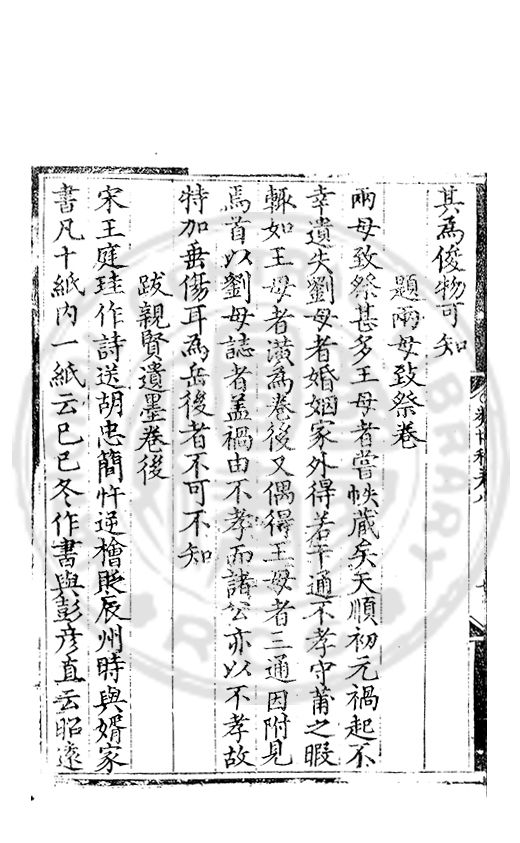 其為俊物可知
題兩母致祭卷
兩母致祭甚多王母者嘗帙藏矣天順初元禍起不
幸遺失劉母者婚姻家外得若干通不孝守莆之暇
輒如王母者潢為卷後又偶得王母者三通因附見
焉首以劉母誌者盖禍由不孝而諸公亦以不孝故
特加垂傷耳為岳後者不可不知
跋親賢遺墨卷後
宋王庭珪作詩送胡忠簡忤逆檜貶辰州時與婿家
書凡十紙內一紙云巳巳冬作書與彭彦直云昭遠